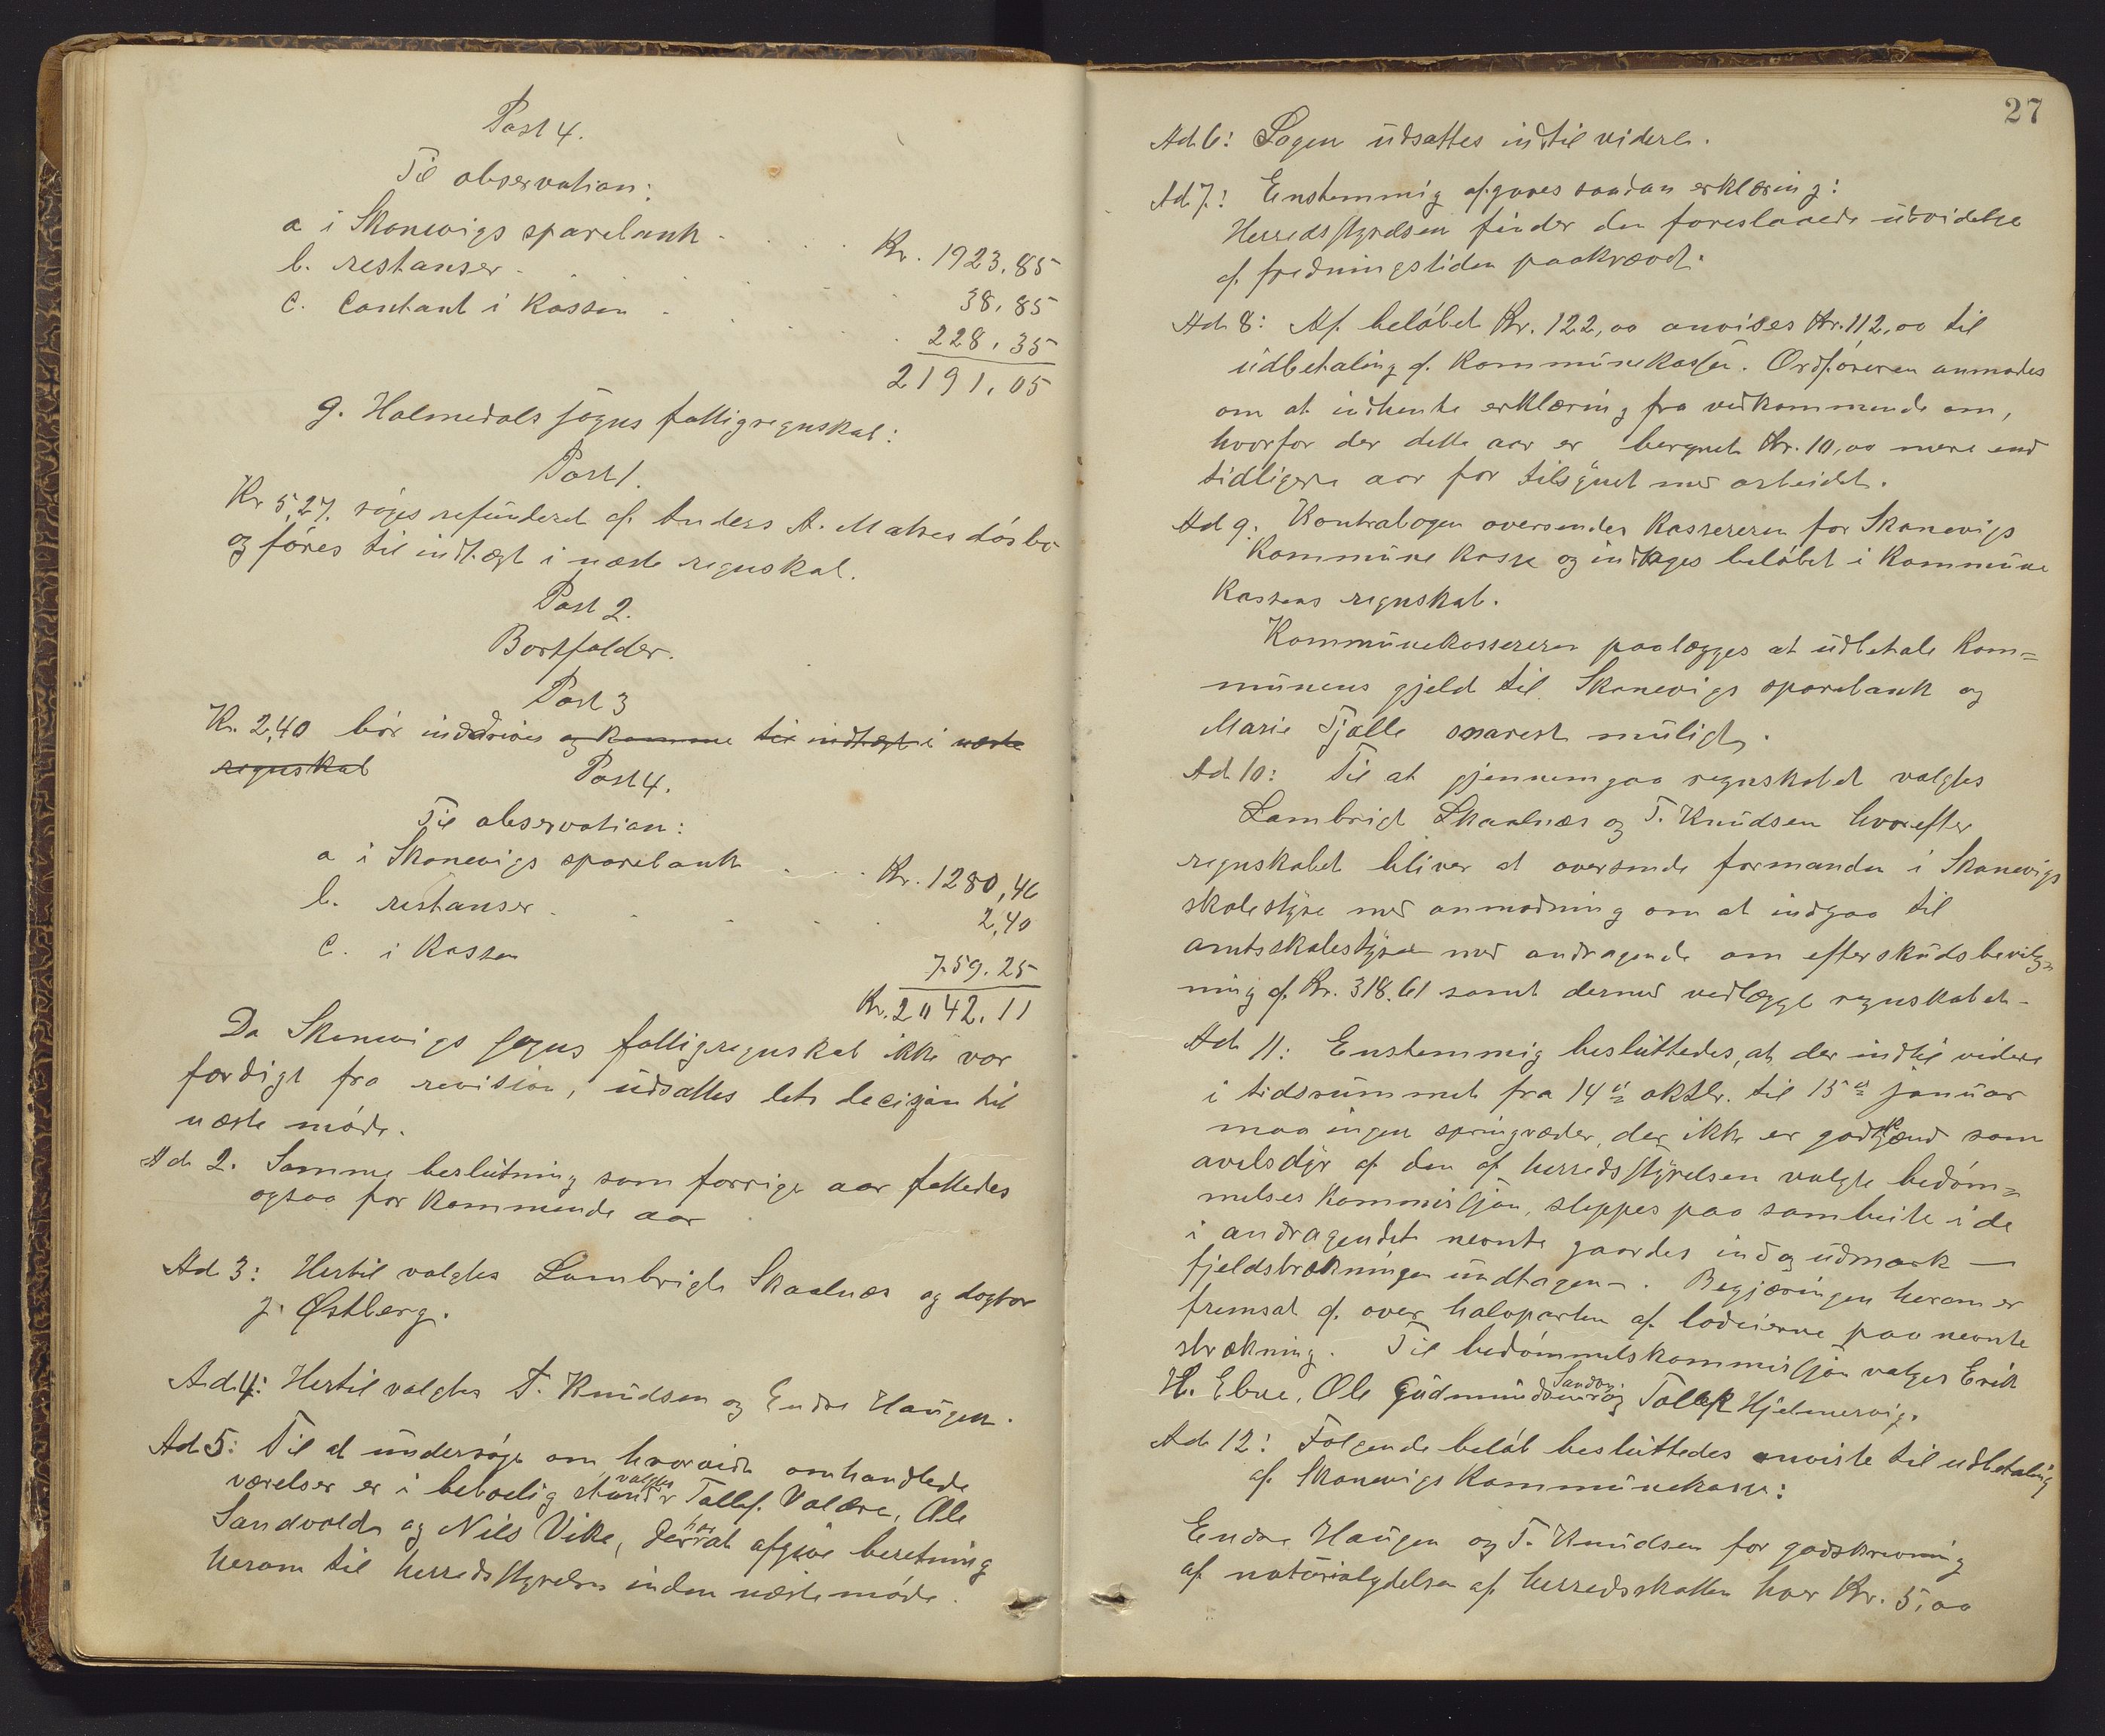 Post 4.
Til observation:
a i Skonevigs sparebank . . . Kr. 1923,85
b. restanser . . . 38,85
c. Contant i kassen . . . 228,35
2191,05
g. Holmedals sogns fattigregnskab:
Post 1.
Kr 5,27 søges refunderet af Anders A. Matres dósbo
og føres til indtægt i næste regnskab.
Post 2.
Bortfalder.
Post 3
Kr. 2,40 bör inddrives og komme til indtægt i næste
regnskab
Post 4.
Til observation:
a i Skonevigs sparebank . . . Kr. 1280,46
b. restanser . . . 2,40
c. i kassen
759.25
Kr. 2042.11
Da Skonevigs sogns fattigregnskab ikke var
færdigt fra revision, udsattes dets decisjon til
næste móde.
Ad 2. Samme beslutning som forrige aar fattedes
ogsaa for kommende aar
Ad 3: Hertil valgtes Lambrigt Skaalnæs og doktor
J. Østberg.
Ad 4: Hertil valgtes T. Knudsen og Endre Haugen.
Ad 5: Til at undersøge om hvorvidt omhandlede
værelser er i beboelig stand valgtes Tollef Valdre, Ole
Sandvold og Nils Vike, der har at afgive beretning
herom til herredsstyrelsen inden næste móde.
27
Ad 6: Sagen udsattes indtil videre.
Ad 7: Enstemmig afgaves saadan erklæring:
Herredsstyrelsen finder den foreslaaede udvidelse
af fredningstiden paakrævet.
Ad 8: Af beløbet Kr. 122,00 anvises Kr. 112,00 til
udbetaling af kommunekassen. Ordføreren anmodes
om at indhente erklæring fra vedkommende om,
hvorfor der dette aar er beregnet Kr. 10,00 mere end
tidligere aar for tilsynet med arbeidet.
Ad 9. Kontrabogen oversendes kassereren for Skonevigs
kommune kasse og indtages beløbet i kommune
kassens regnskab.
Kommunekassereren paalægges at udbetale kom=
munens gjeld til Skonevigs sparebank og
Marie Fjælle snarest muligt.
Ad 10: Til at gjennemgaa regnskabet valgtes
Lambrigt Skaalnæs og T. Knudsen hvorefter
regnskabet bliver at oversende formanden i Skonevigs
skolestyre med anmodning om at indgaa til
amtsskolestyret med andragende om efterskudsbevilg=
ning af Kr. 318.61 samt dermed vedlægge regnskabet.
Ad 11: Enstemmig besluttedes, at der indtil videre
i tidsrummet fra 14de oktbr. til 15de januar
maa ingen springvæder, der ikke er godkjænd som
avelsdyr af den af herredsstyrelsen valgte bedøm=
melses kommissjon, sleppes paa sambeite i de
i andragendet nevnte gaardes ind og udmark —
fjeldstrækningen undtagen —. Begjæringen herom er
fremsat af over halvparten af lodeierne paa nevnte
strækning. Til bedømmelskommissjon valges Erik
H. Ebne, Ole Gudmundsen Sandvog og Tollef Hjelmervig.
Ad 12: Følgende beløb besluttedes anviste til udbetaling
af Skonevigs kommunekasse:
Endre Haugen og T. Knudsen for godskrivning
af naturalydelsen af herredsskatten hver Kr. 5,00